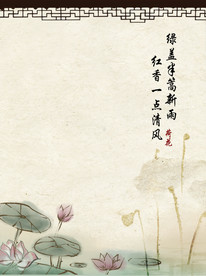 绿盖半篙新雨
红香一点清风
荷花